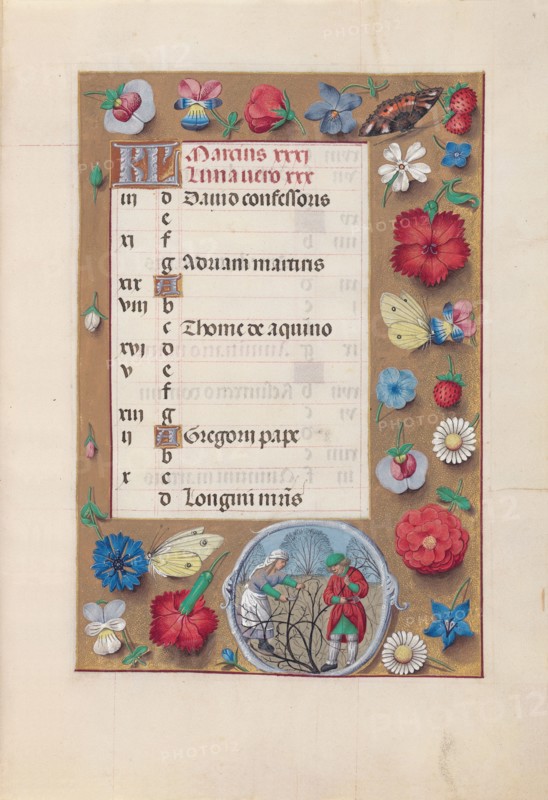 KL Marcius xxxi
Luna vero xxx
iii d Dauid confessoris
e
xi f
g Adriani martiris
xix A
viii b
c Thome de aquino
xvi d
v e
f
xiii g
ii A Gregorii pape
b
x c
d Longini mris
PHOTO12